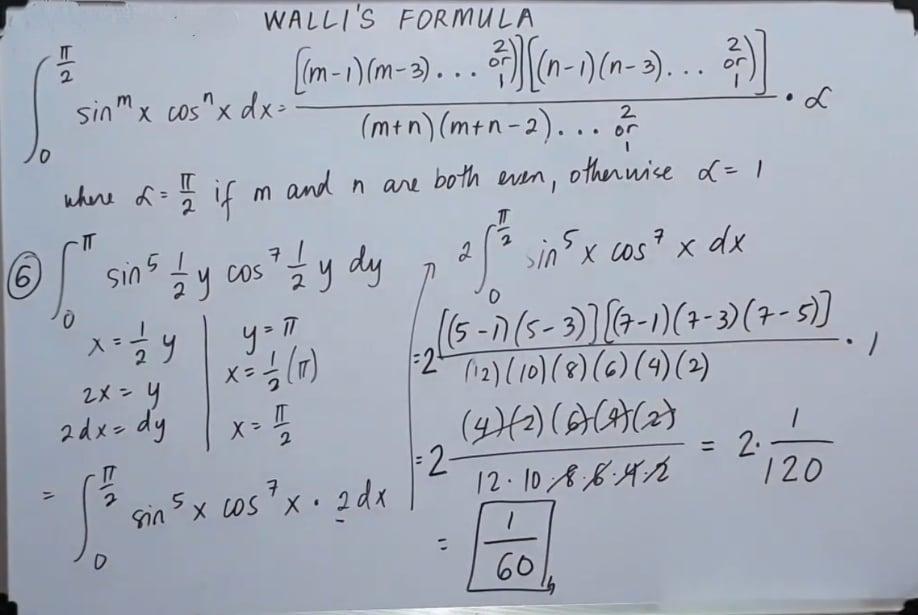 WALLI'S FORMULA
∫₀^(π/2) sin^m x cos^n x dx = [(m-1)(m-3)... 2 or 1)][(n-1)(n-3)... 2 or 1)] / (m+n)(m+n-2)... 2 or 1 · α
where α = π/2 if m and n are both even, otherwise α = 1
⑥ ∫₀^π sin⁵ 1/2 y cos⁷ 1/2 y dy
x = 1/2 y
2x = y
2dx = dy
y = π
x = 1/2 (π)
x = π/2
= ∫₀^(π/2) sin⁵ x cos⁷ x · 2 dx
2 ∫₀^(π/2) sin⁵ x cos⁷ x dx
= 2 [(5-1)(5-3)][(7-1)(7-3)(7-5)] / (12)(10)(8)(6)(4)(2) · 1
= 2 (4)(2)(6)(4)(2) / 12·10·8·6·4·2 = 2 · 1/120
= 1/60